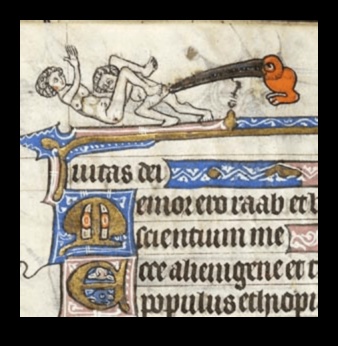 uitas dei
emor ero raab et b
scientium me
cce alienigene et t
populus ethiopu